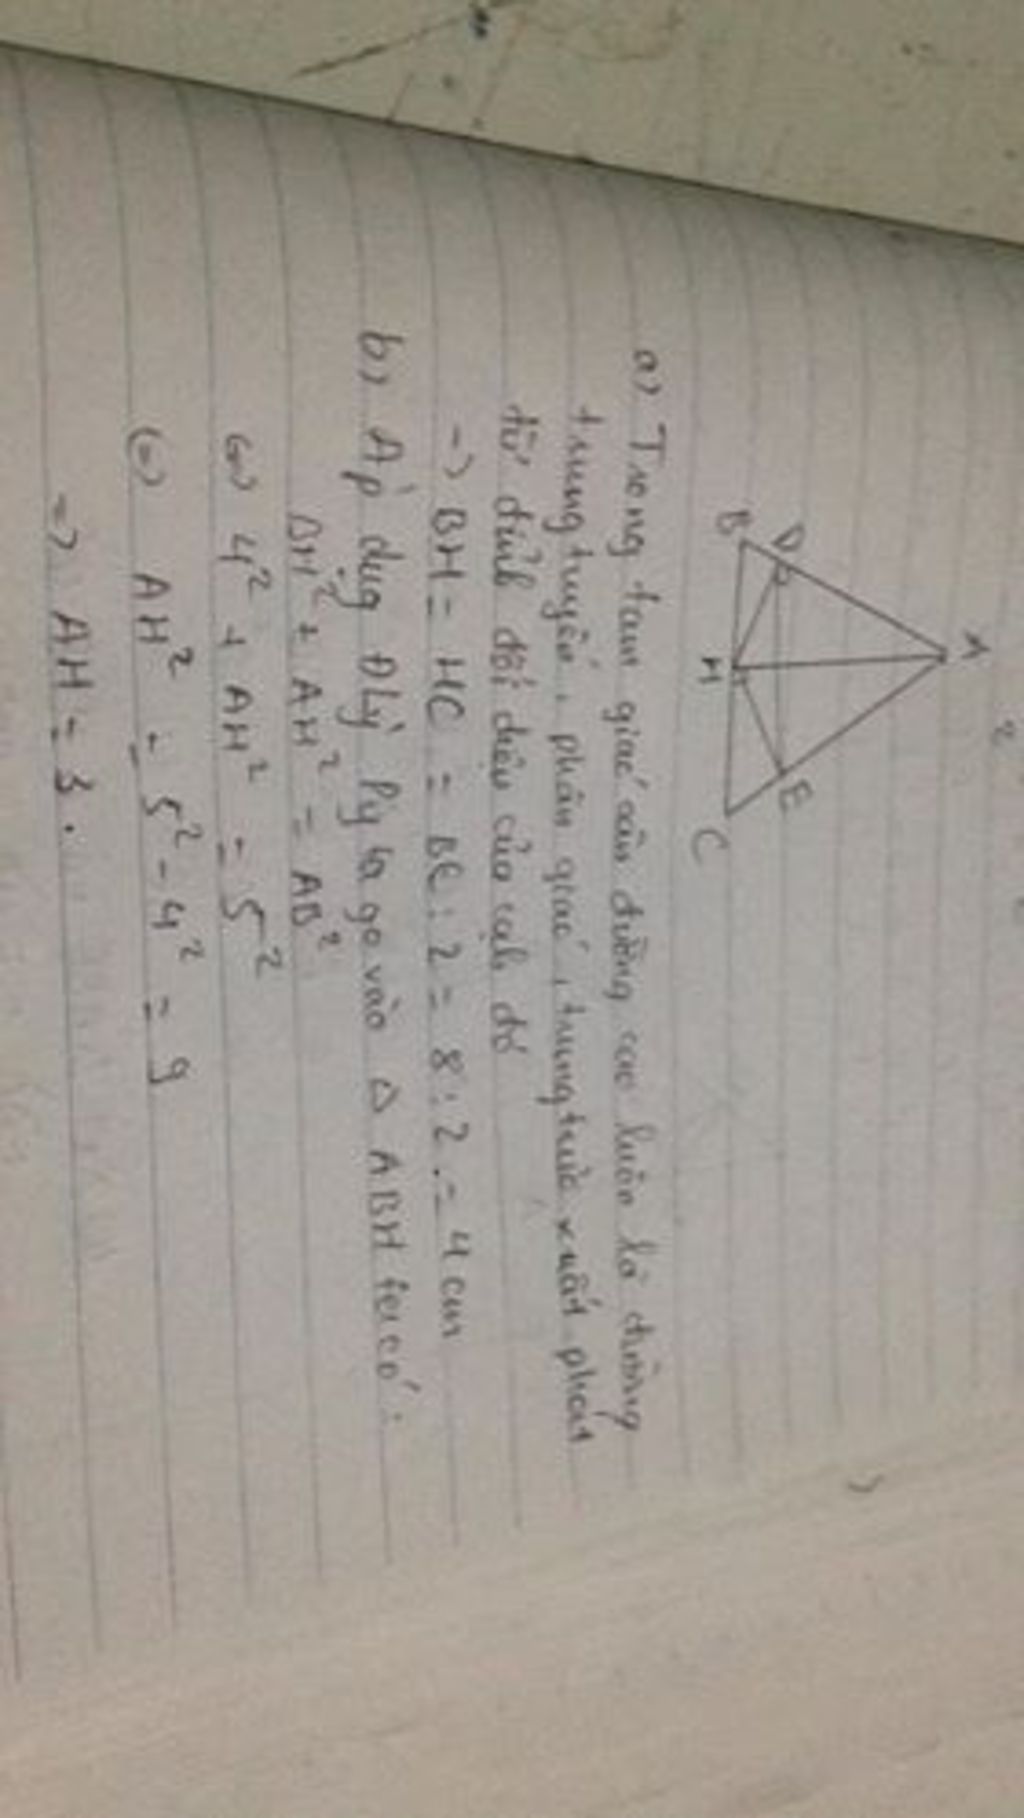 A
B
D
H
E
C
a) Trong tam giác cân đường cao luôn là đường
trung tuyến, phân giác, trung trực xuất phát
từ đỉnh đối diện của cạh đó
-) BH = HC = BC : 2 = 8 : 2 = 4 cm
b) Áp dụg Đlý Pytago vào Δ ABH ta có :
BH² + AH² = AB²
(=) 4² + AH² = 5²
(=) AH² = 5² - 4² = 9
=) AH = 3.